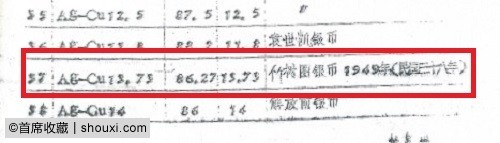 55 AG-Cu12.5 87.5 12.5 〃
56 88.2 11.8 袁世凯銀币
57 AG-Cu13.73 86.27 13.73 竹图银币 1949年(民国三十八年)
58 AG-Cu14 86 14 解放前银币
@首席收藏 | shouxi.com